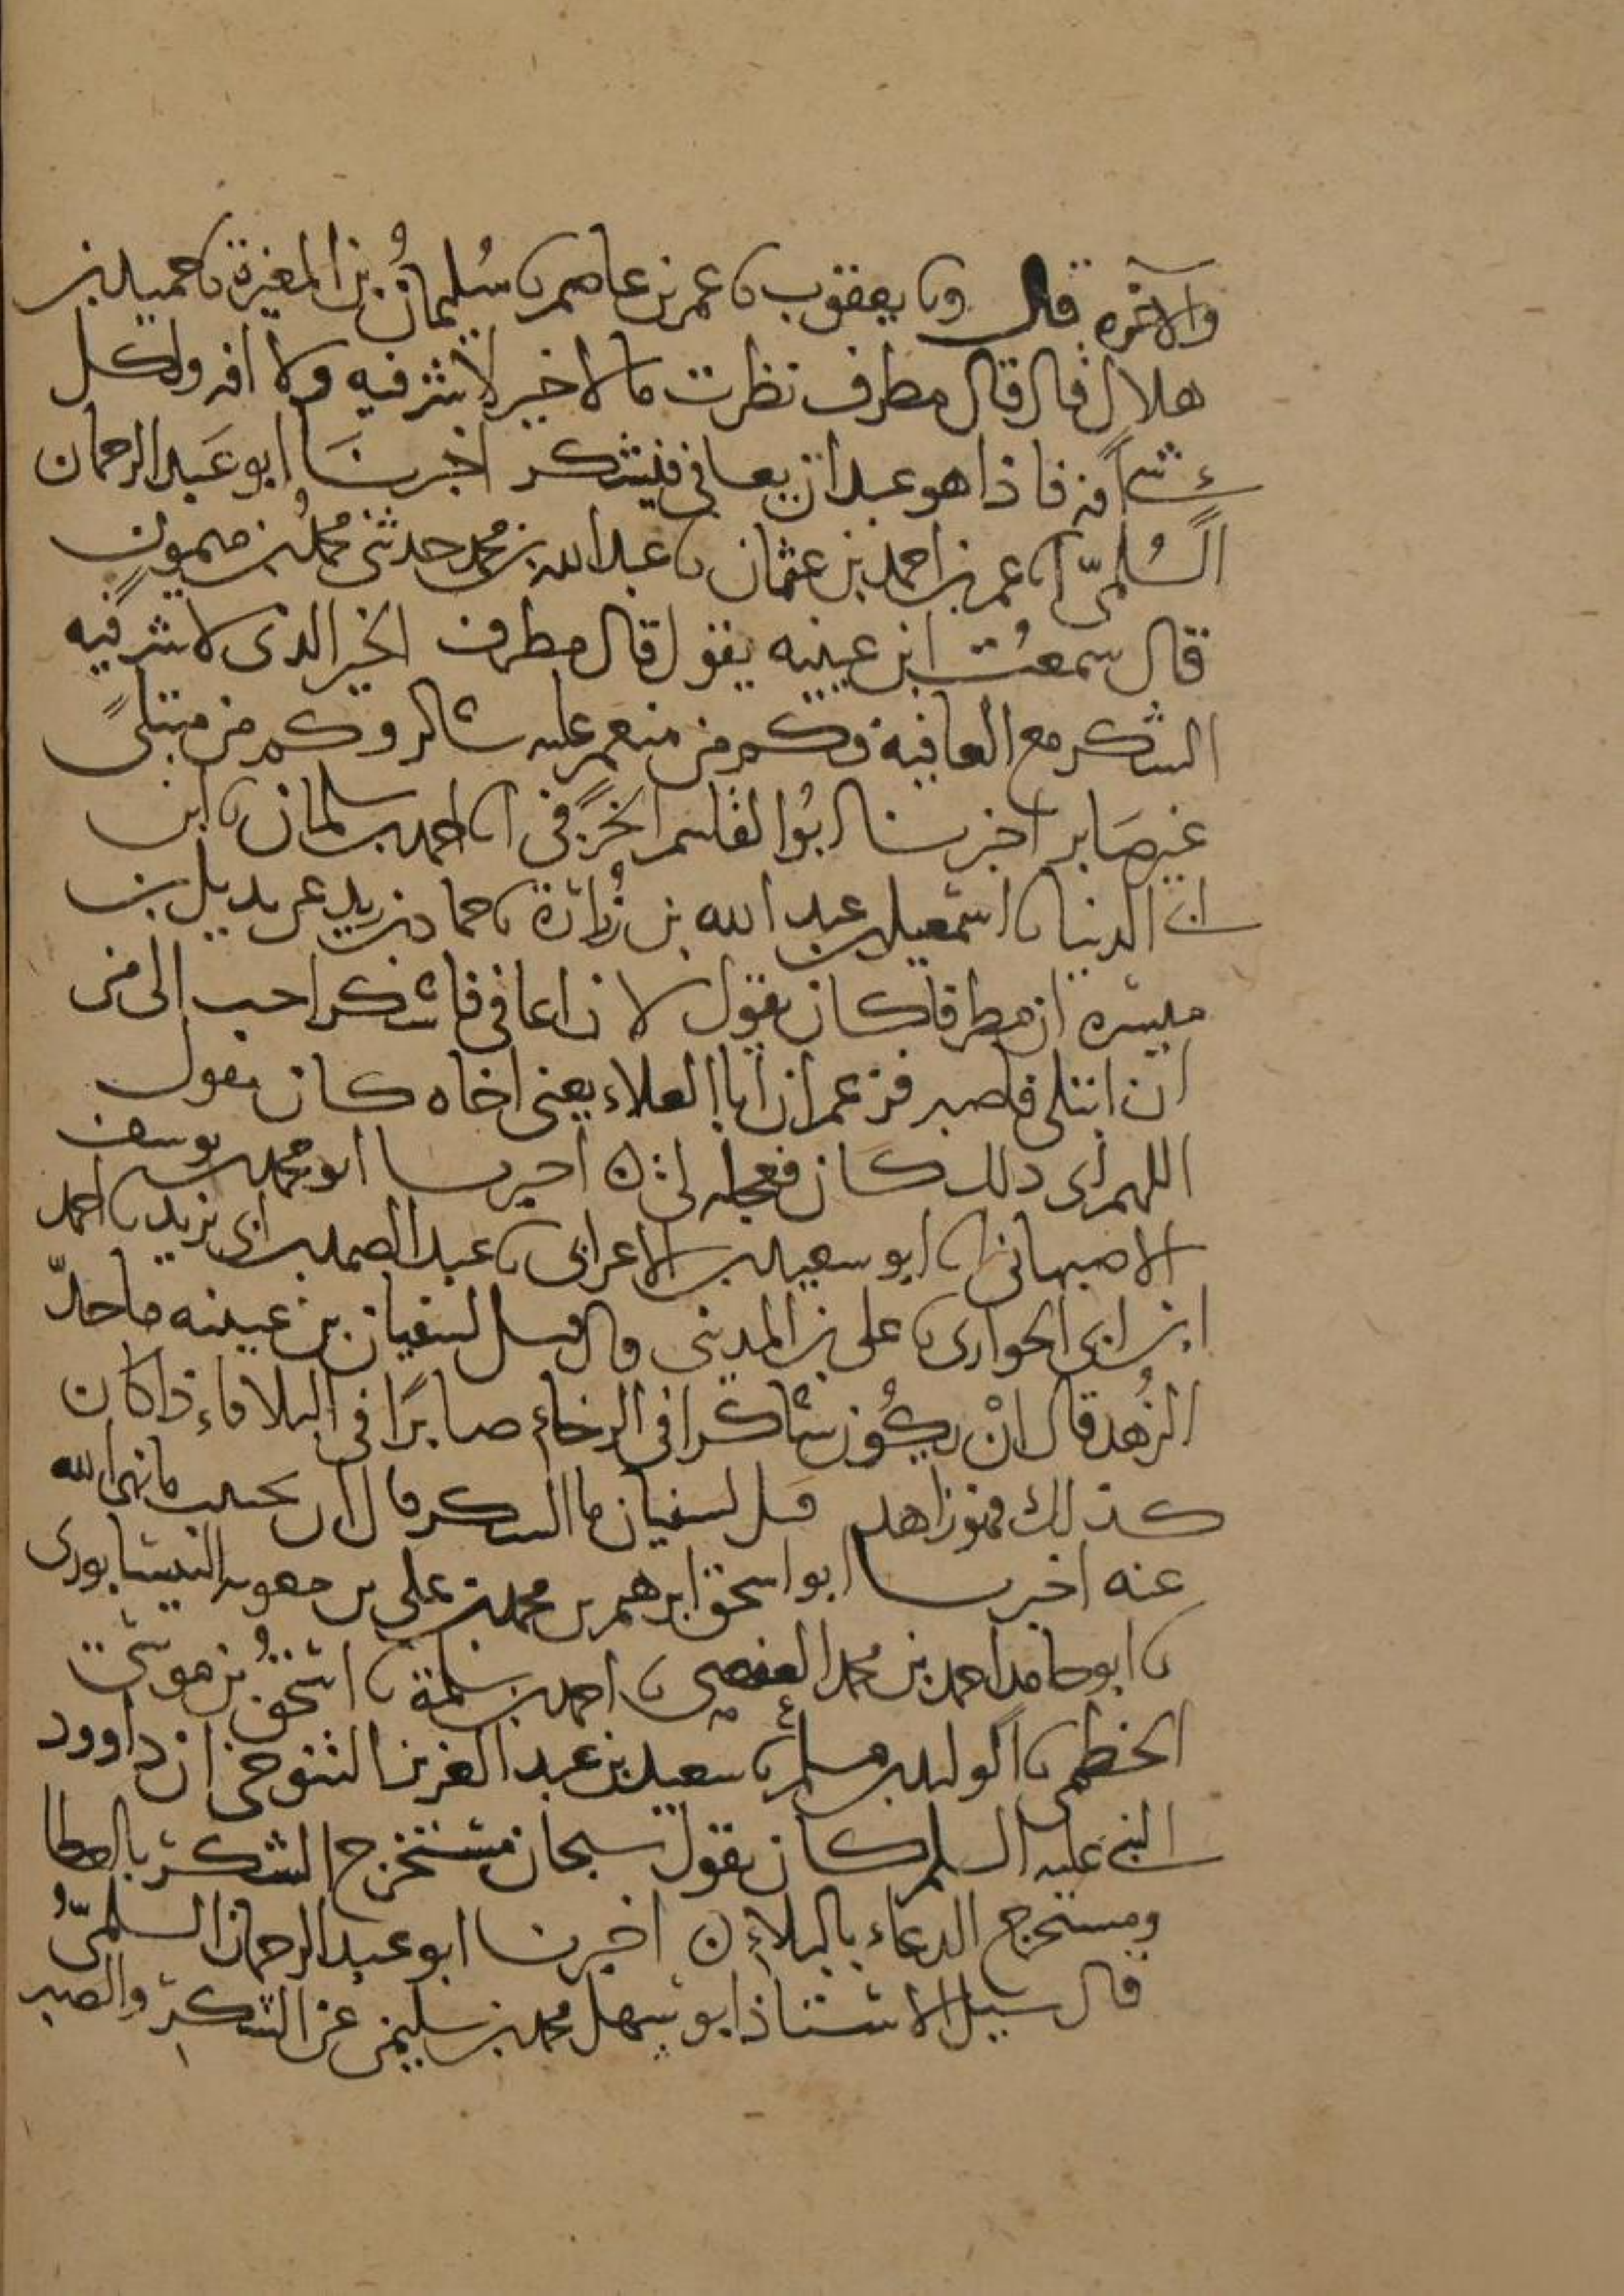 والآخرة قال ونا يعقوب نا عمر بن عاصم نا سُليمانُ بن المغيرة نا حميد بن
هلال قال قال مطرف نظرت ما لا خير لا شر فيه ولا افه ولكل
شئ افه فاذا هو عبد ان يعافى فيشكر اخبرنَا ابو عَبد الرحمان
السُلميّ انا عمر بن احمد بن عثمان نا عبد الله بن محمد حدثنى محمدُ بن ميمون
قال سمعتُ ابن عيينه يقول قال مطرف الخير الذى لا شر فيه
الشكر مع العافية فكم من منعم عليه شاكر وكم من مبتلىً
غير صَابر اخبرنا ابُوا لقسم الخرَفى انا احمد بن سلمان نا ابن
ابى الدنيا نا اسمعيل بن عبد الله بن زُرارة نا حماد بن زيد عن بديل بن
ميسره ان مطرفا كان يقول لان اعافى فاشكر احب الى من
ان ابتلى فاصبر فزعم ان ابا العلاء يعنى اخاه كان يقول
اللهم اى ذلك كان فعجله لى ن اخبرنا ابو محمد بن يوسف
الاصبهانى انا ابو سعيد بن الاعرابى نا عبد الصمد بن ابى يزيد نا احمد
ابن ابى الحوارى نا على بن المدينى قال قيل لسفيان بن عيينه ما حدّ
الزُهد قال انْ يكُون شاكرا فى الرخاء صابرًا فى البلاء فاذا كان
كذلك فهو زاهد قيل لسفيان ما الشكر قال ان يجتنب ما نهى الله
عنه اخبرنا ابو اسحق ابرهيم بن محمد بن على بن معويه النيسابورى
نا ابو حامد احمد بن محمد العفصى نا احمد بن سلمة نا اسحقُ بن موسى
الخطمى نا الوليد بن مسلم نا سعيد بن عبد العزيز التنوخى ان داوود
النبى عليه السلم كان يقول سبحان مستخرج الشكر بالعطا
ومستخرج الدعاء بالبلاء ن اخبرنا ابو عبد الرحمان السلمىّ
قال سيل الاستاذ ابو سهل محمد بن سليمن عن الشكر والصبر